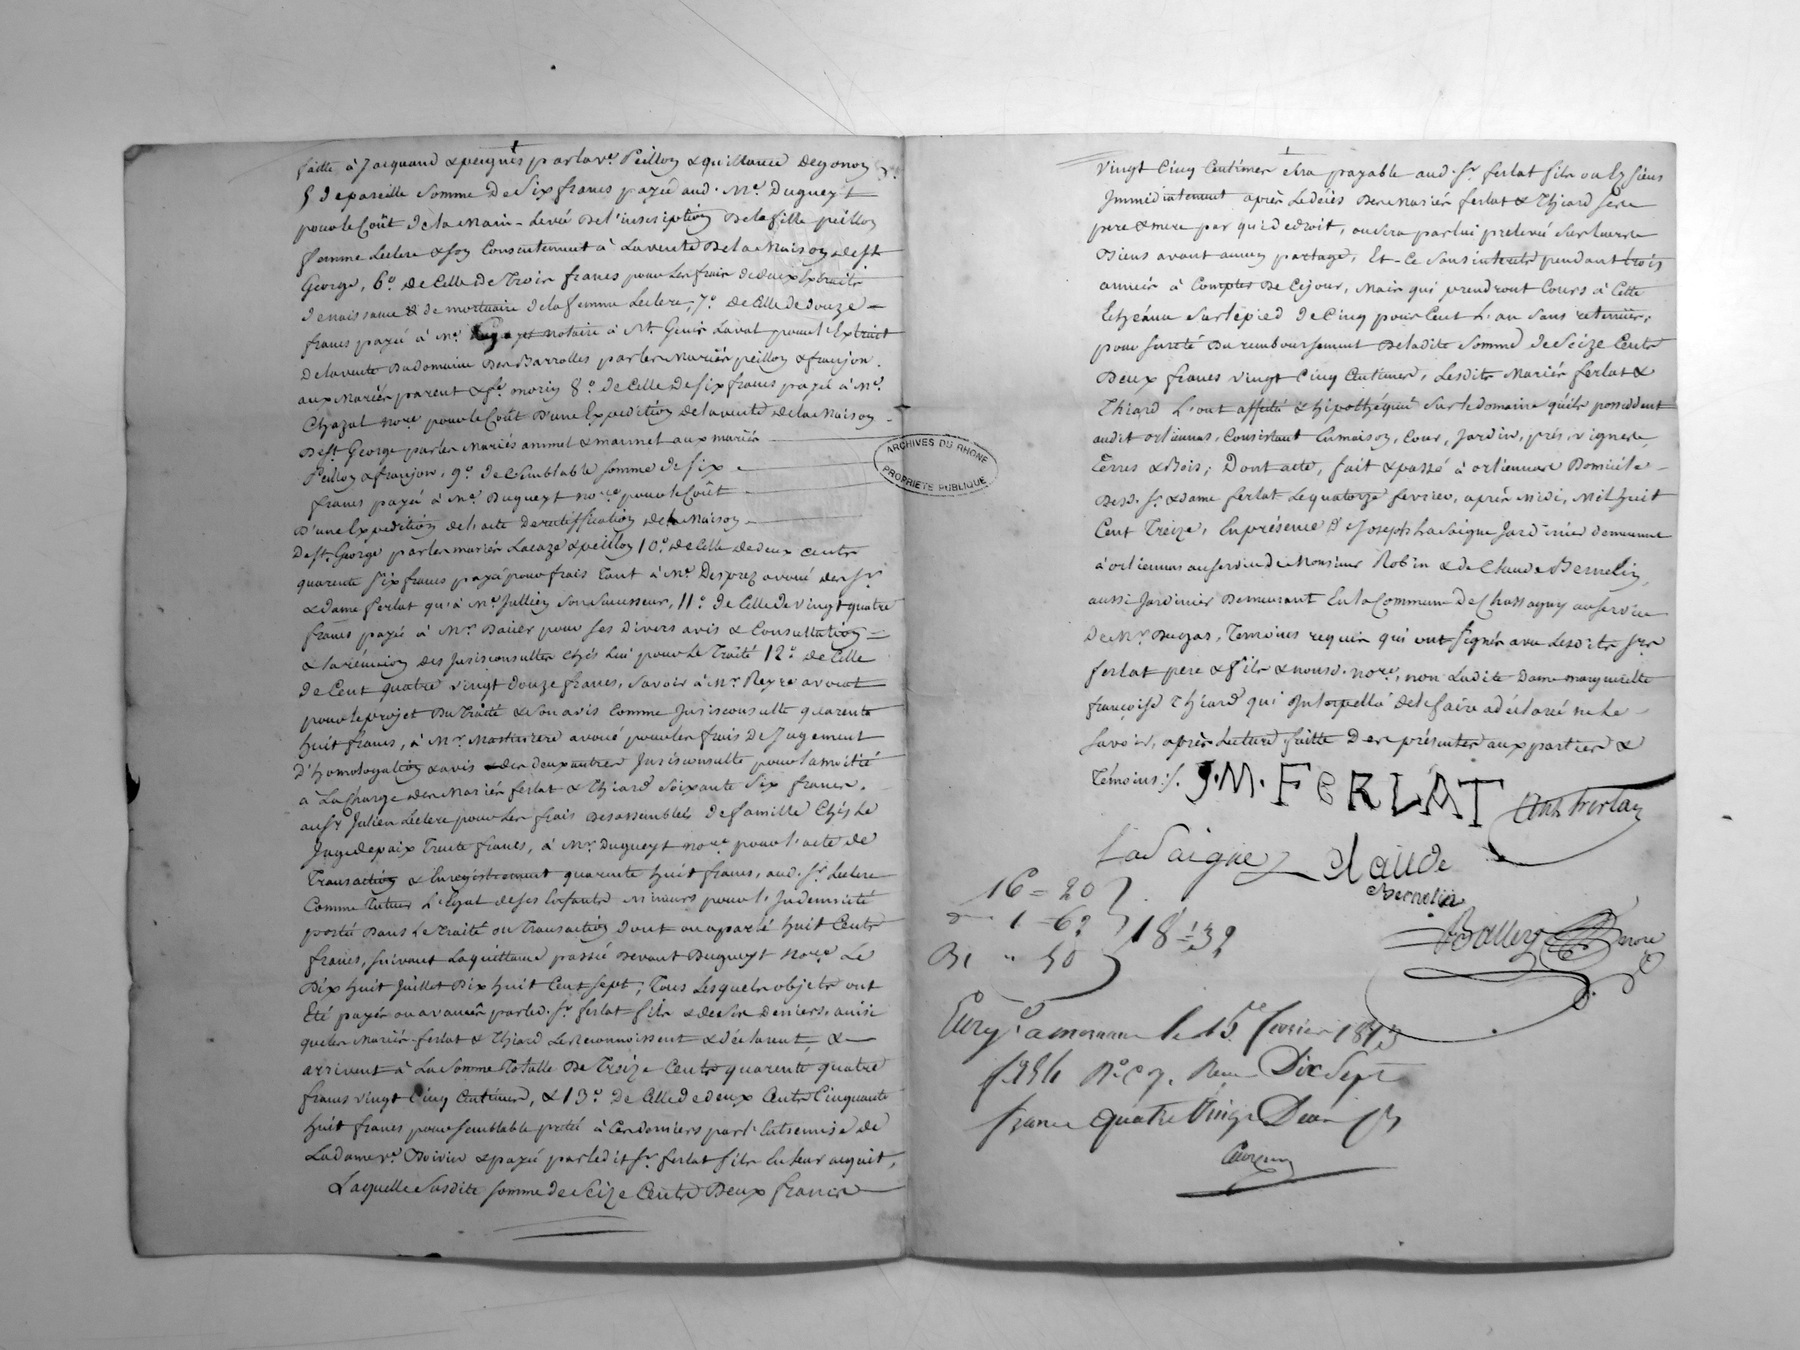 faitte à Jacquand & peignés par la ve. Peillon & quittance degonon
5°. de pareille Somme De Six francs payée aud. Me. Dugueyt
pour le Coût de la Main-levée De l'inscription De la fille peillon
femme Leclerc & son Consentement à la vente De la Maison de St
George, 6°. de Celle de Trois francs pour les frais de deux Extraits
de naissance & de mortuaire de la femme Leclerc, 7°. de Celle de douze
francs payé à Me. notaire à St. Genis Laval pour l'Extrait
De la vente Du domaine Des Barrolles par les Mariés peillon & franjon
aux Mariés parent & fe. morin 8°. de Celle De Six francs payé à Me.
Chazal nore. pour le Coût D'une Expedition de la vente de la Maison
De St. George par les Mariés animel & marinet aux mariés
Peillon & franjon, 9°. de Semblable Somme de Six
francs payé à Me. Dugueyt nore. pour le Coût
D'une Expedition de l'acte De ratiffication de la Maison
De St. George par les mariés Lacaze & peillon 10°. de Celle de deux cents
quarente Six francs payé pour frais Tant à Me. Desprez avoué des Sr.
& dame ferlat qu'à Me. Jullien Son Successeur, 11°. de Celle de vingt quatre
francs payé à Mr. Balier pour Ses Divers avis & Consultation
& la réunion des Jurisconsultes Chés Lui pour Le Traité 12°. de Celle
de Cent quatre vingt Douze francs, Savoir à Mr. Reyre avocat
pour le projet Du Traité & Son avis Comme Jurisconsulte quarente
huit francs, à Mr. avoué pour les frais De Jugement
d'homologation & avis des deux autres Jurisconsulte pour la moitié
à La Charge des Mariés ferlat & Thiard Soixante Six francs,
au Sr. Julien Leclerc pour Les frais Des assemblées De famille Chés Le
Juge de paix Trente francs, à Mr. Dugueyt nore. pour l'acte de
Transaction & Enregistrement quarente huit francs, aud. Sr. Leclerc
Comme Tuteur Légal de Ses Enfants mineurs pour l'Indemnité
portée Dans Le Traité ou Transaction Dont on a parlé huit Cents
francs, Suivant La quittance passée Devant Dugueyt Nore. Le
Dix huit Juillet Dix huit Cent Sept; Tous Lesquels objets ont
Eté payés ou avancés par led. Sr. ferlat fils & de Ses Deniers ainsi
que les Mariés ferlat & Thiard Le reconnoissent & déclarent, &
arrivent à La Somme Totalle De Treize Cents quarente quatre
francs vingt Cinq Centimes, & 13°. De Celle de deux Cents Cinquante
huit francs pour Semblable pretée à Ces derniers par l'Entremise de
La dame ve. Boivin & payé par le dit Sr. ferlat fils En Leur acquit,
Laquelle Susdite Somme de Seize Cents Deux francs
vingt Cinq Centimes Sera payable aud. Sr. ferlat fils ou les Siens
Immédiatement après Le décés Des Mariés ferlat & Thiard Ses
pere & mere par qui de droit, ou Sera par lui prelevée Sur Leurs
Biens avant aucun partage, Et Ce Sans interets pendant trois
années à Compter De Ce jour, Mais qui prendront Cours à Cette
Echéance Sur le pied de Cinq pour Cent L'an Sans retenue;
pour Sureté Du remboursement De ladite Somme de Seize Cents
Deux francs vingt Cinq Centimes, Lesdits Mariés ferlat &
Thiard L'ont affecté & hipothéqué Sur le domaine qu'ils possedent
audit orliennas, Consistant En maison, Cour, Jardin, prés, vignes,
Terres & Bois; Dont acte, fait & passé à orliennas Domicile
Desd. Sr. & dame ferlat Le quatorze fevrier, après midi, Mil huit
Cent Treize, En présence D Joseph La Saigne Jardinier demeurant
à orliennas au Service de Monsieur Robin & de Claude Bernelin,
aussi Jardinier Demeurant En la Commune De Chassagny au Service
De Mr. Dugas, Temoins requis qui ont Signé avec Lesdits Srs
ferlat pere & fils & nousd. nore., non Ladite Dame margueritte
françoise Thiard qui Interpellée de le faire a déclaré ne Le
Savoir, après Lecture faitte Des présentes aux parties &
Témoins:/.
J.M. FERLAT
Ant ferlat
laSaigne
claude
Bernelin
Ballier nore
16 = 20
1 - 62
18 = 32
" 50
Enrgé. a mornant le 15 fevrier 1813
fo. 156 Ro. C 7. Reçu Dix Sept
francs quatre Vingt Deux
ARCHIVES DU RHONE
PROPRIETE PUBLIQUE